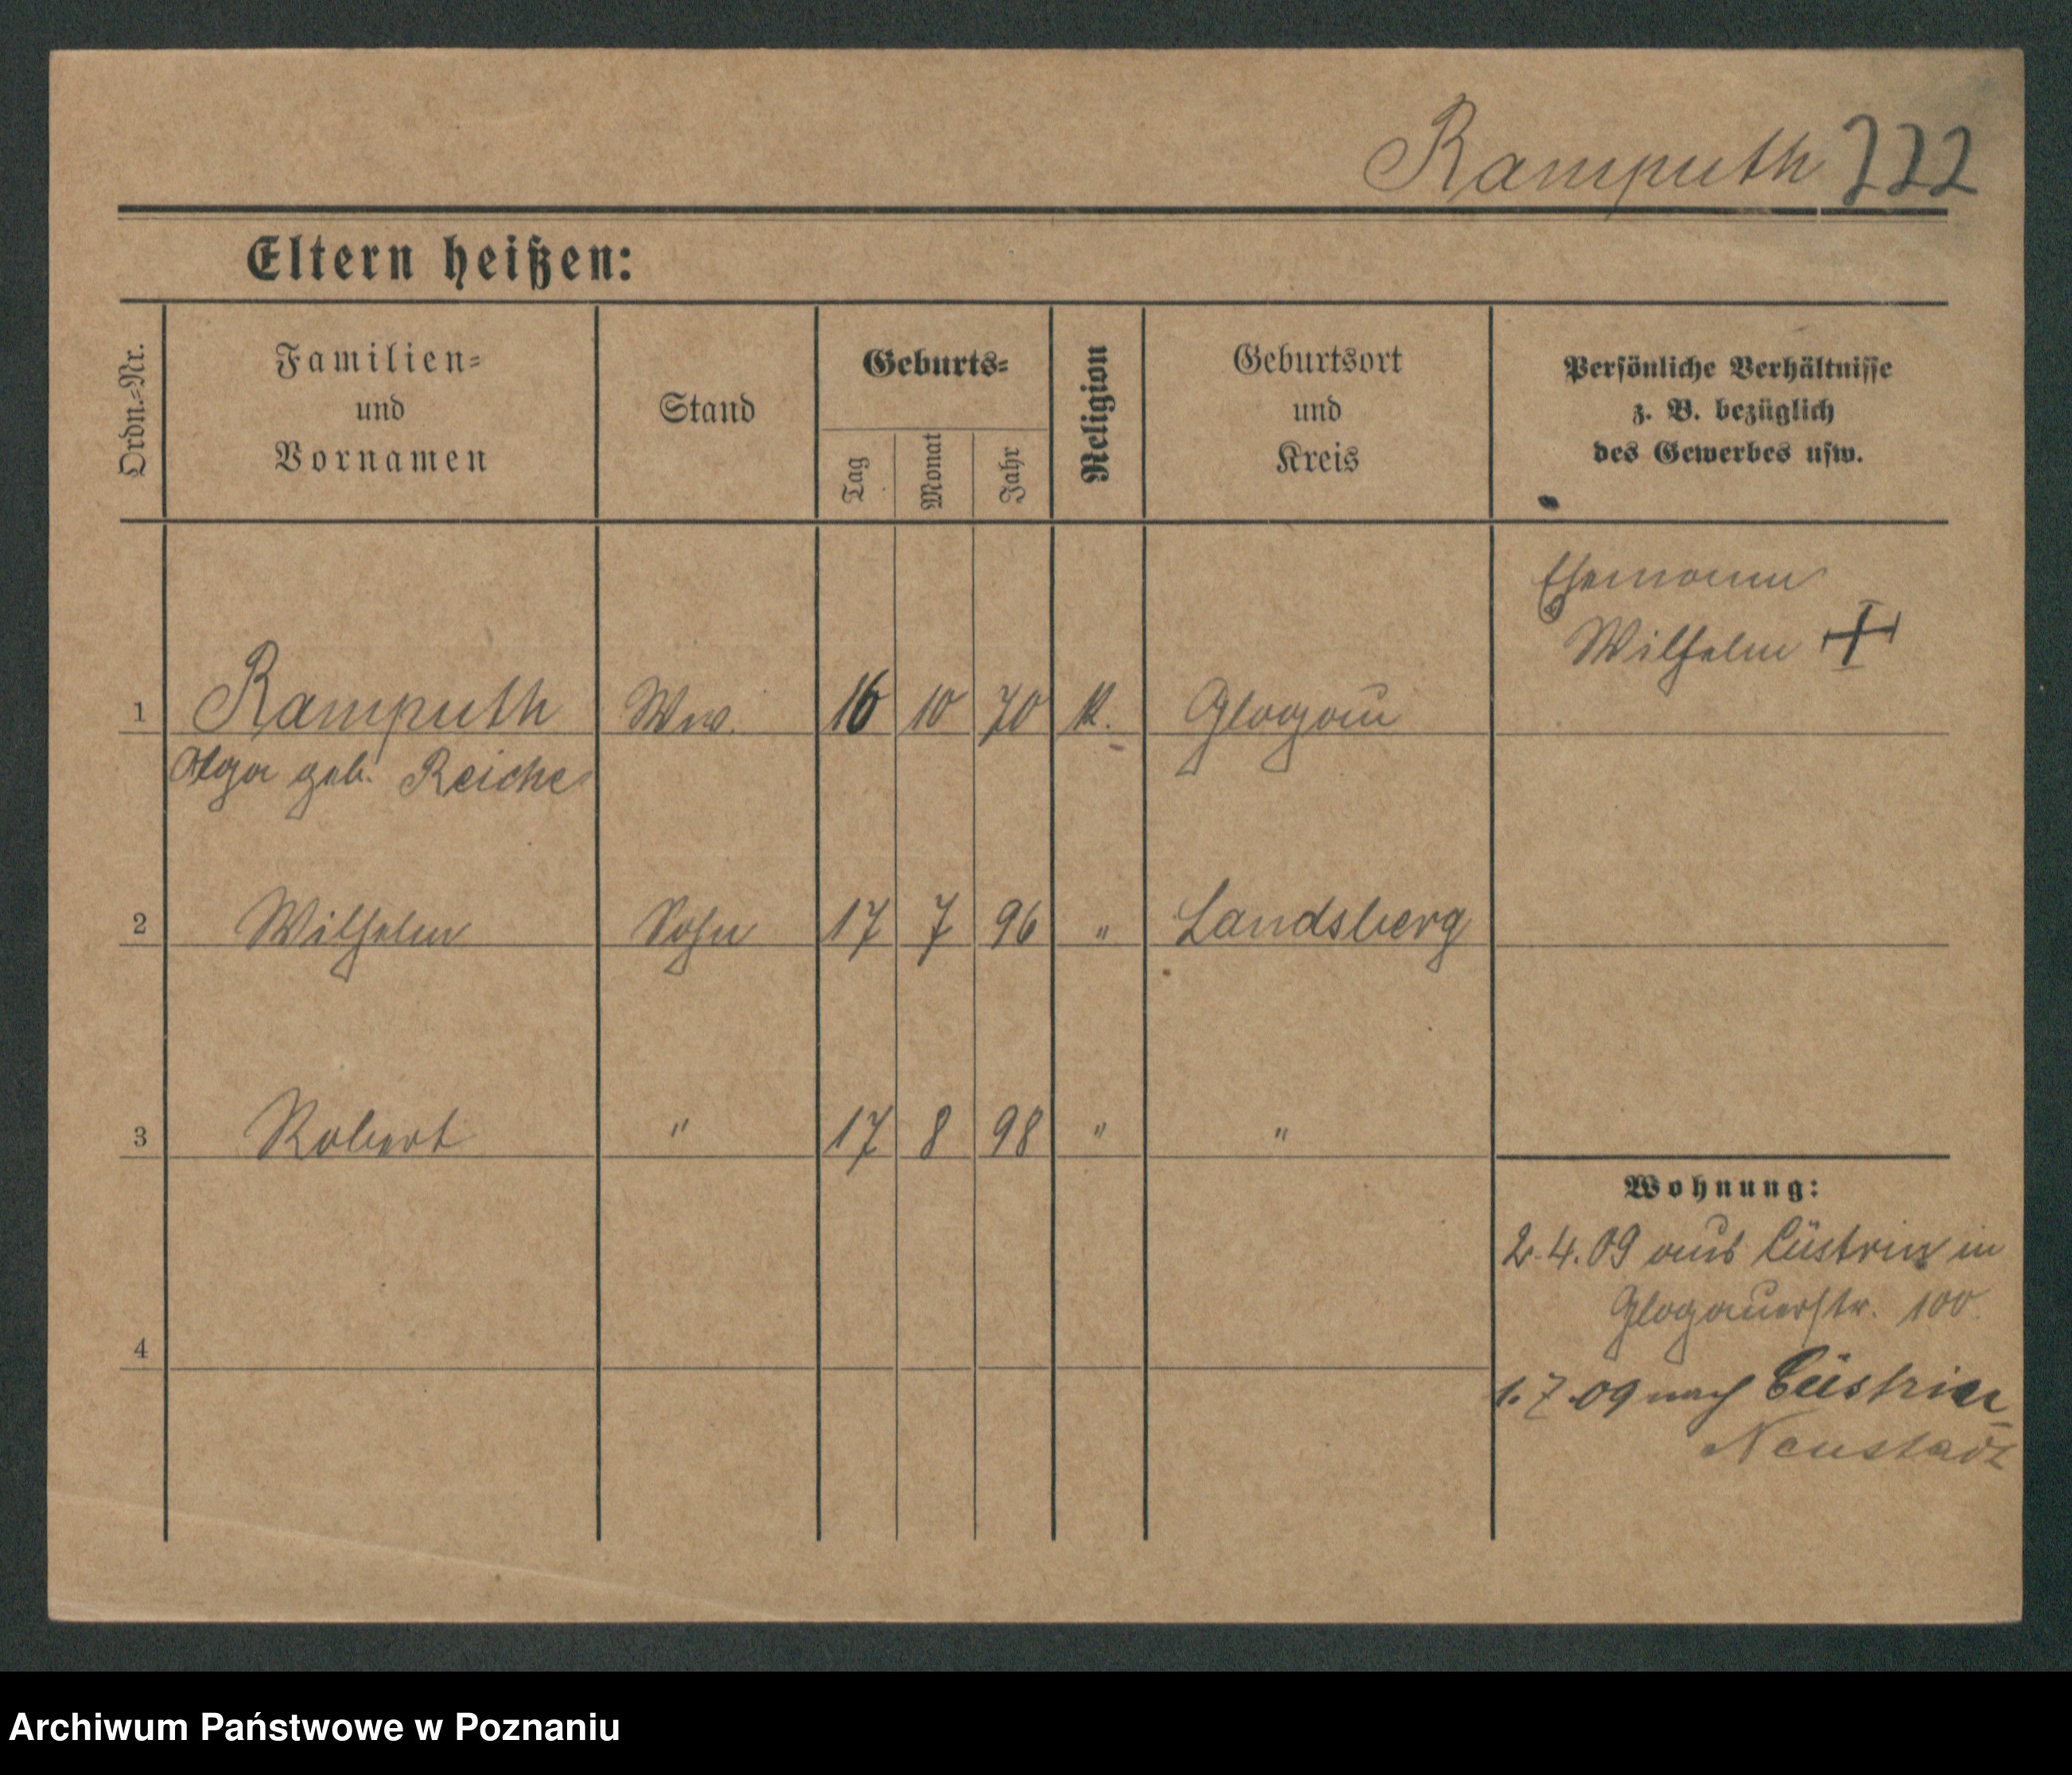 Ramputh 222
Eltern heißen:
Ordn.=Nr.
Familien=
und
Vornamen
Stand
Geburts=
Tag
Monat
Jahr
Religion
Geburtsort
und
Kreis
Persönliche Verhältnisse
z. B. bezüglich
des Gewerbes usw.
Ehemann
Wilhelm +
1 Ramputh Ww. 16 10 70 K. Glogau
Olga geb. Reiche
2 Wilhelm Sohn 17 7 96 " Landsberg
3 Robert " 17 8 98 " "
Wohnung:
2.4.09 aus Cüstrin in
Glogauerstr. 100.
4
1.7.09 nach Cüstrin-
Neustadt
Archiwum Państwowe w Poznaniu